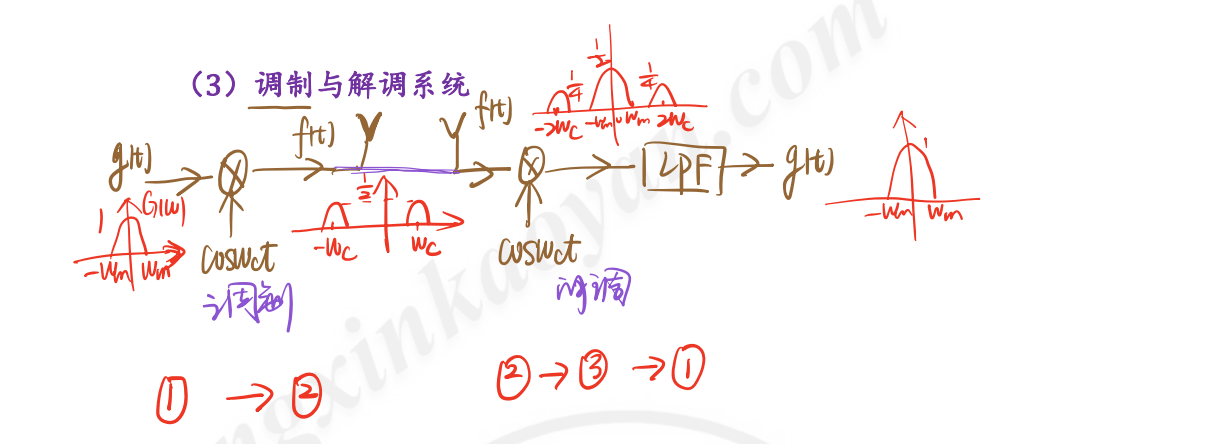 （3）调制与解调系统
g(t) f(t) f(t) LPF g(t)
cosωct cosωct
调制 解调
1 G(ω)
-ωm ωm
1/2
-ωc ωc
1/4 1/2 1/4
-2ωc -ωm ωm 2ωc
1
-ωm ωm
① → ② ② → ③ → ①
ngxinkaoyan.com